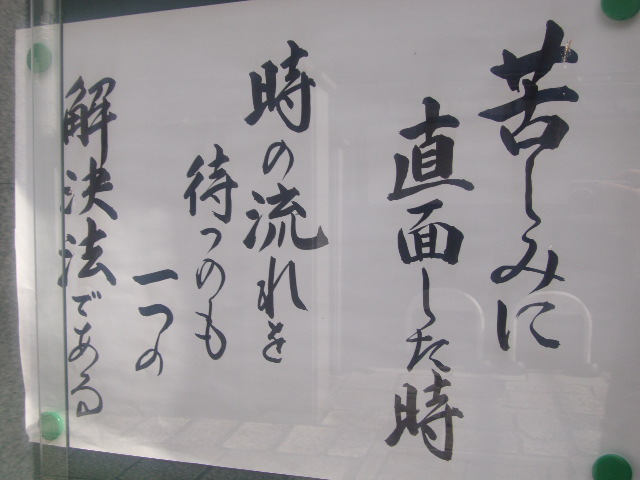 苦しみに
直面した時
時の流れを
待つのも
一つの
解決法である